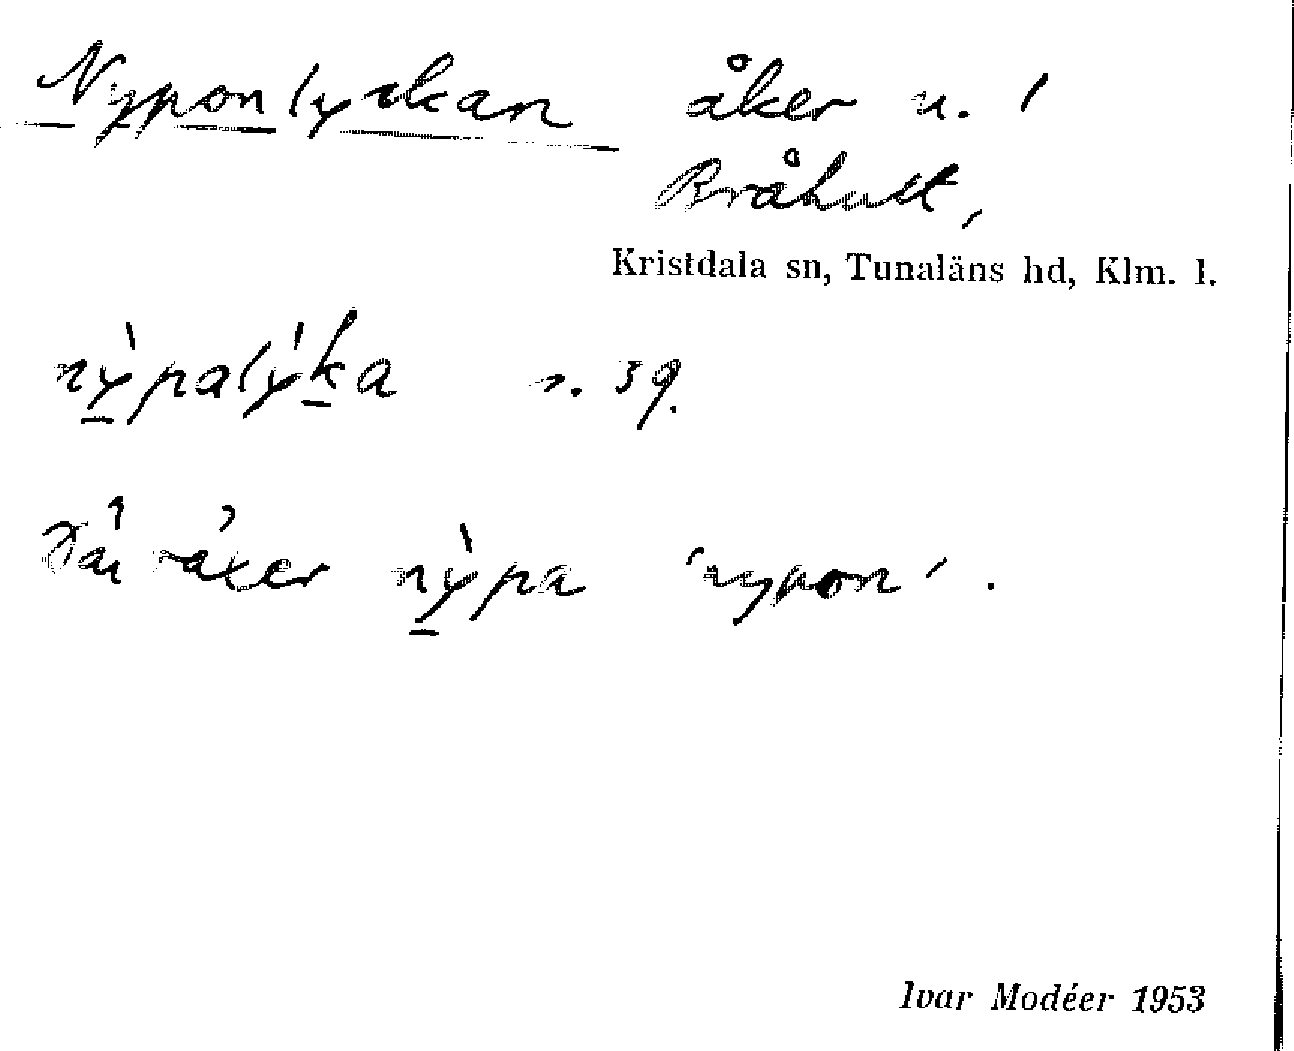 Nyponlyckan åker n. /
Bråhult,
Kristdala sn, Tunaläns hd, Klm. l.
nỳpalýka s. 39.
Där växer nỳpa 'nypon'.
Ivar Modéer 1953